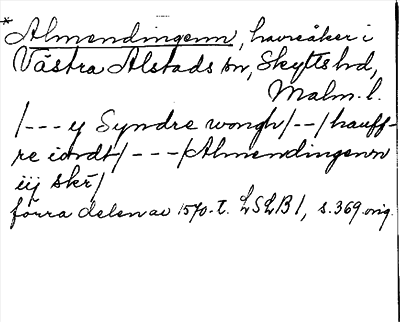 * Almendingenn, havreåker i
Västra Alstads sn, Skytts hd,
Malm. l.
/--- y Syndre wongh/--/hauff-
re iordt/---/Almendingenn
iij skr/
förra delen av 1570-t. LSLB 1, s. 369 orig.